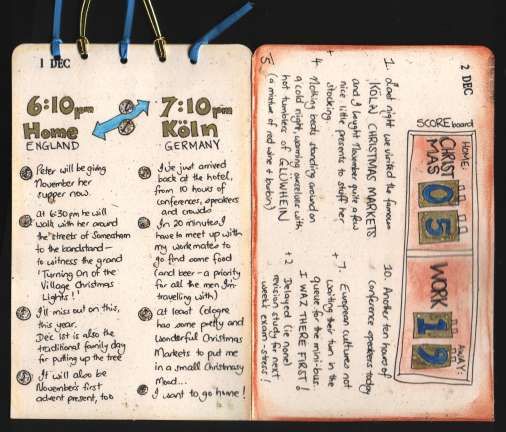 1 DEC
6:10pm
Home
ENGLAND
7:10pm
Köln
GERMANY
Peter will be giving
November her
supper now.
At 6:30pm he will
walk with her around
the streets of Somersham
to the bandstand –
to witness the grand
'Turning On of the
Village Christmas
Lights!'
I'll miss out on this,
this year.
Dec 1st is also the
traditional family day
for putting up the tree
It will also be
November's first
advent present, too
I've just arrived
back at the hotel,
from 10 hours of
conferences, speakers
and crowds
In 20 minutes I
have to meet up with
my workmates to
go find some food
(and beer - a priority
for all the men I'm
travelling with)
At least Cologne
has some pretty and
wonderful Christmas
Markets to put me
in a small Christmasy
Mood...
I want to go home!
2 DEC
SCOREboard
HOME:
CHRIST
MAS
05
WORK
AWAY:
19
1. Last night we visited the famous
KÖLN CHRISTMAS MARKETS
and I bought November quite a few
nice little presents to stuff her
stocking.
+
4. Nothing beats standing around on
a cold night, warming ourselves with
hot tumblers of GLÜHWEIN
(a mixture of red wine + burbon)
5
10. Another ten hours of
conference speakers today
+ 7. European cultures not
waiting their turn in the
queue for the mini-bus.
I WAZ THERE FIRST!
+ 2 Delayed (ie none)
revision study for next
week exam - stress!